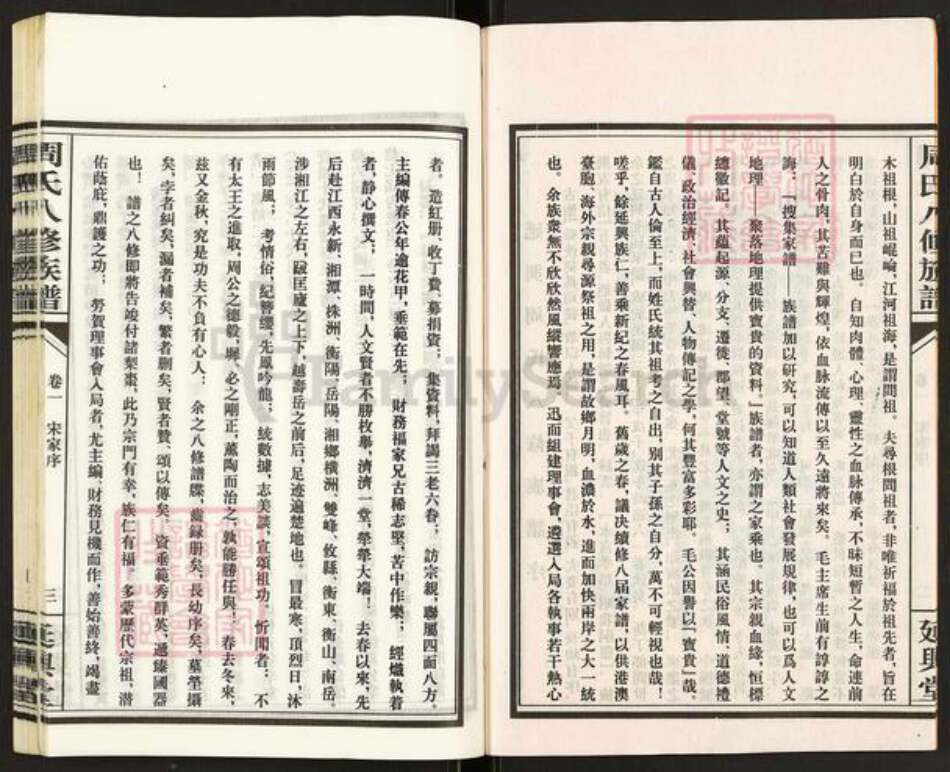 木祖根，山祖崐崘，江河祖海，是謂問祖。夫尋根問祖者，非唯祈福於祖先者，旨在
明白於自身而已也。自知肉體、心理、靈性之血脉傳承，不昧短暫之人生，命連前
人之骨肉，其苦難與輝煌，依血脉流傳以至久遠將來矣。毛主席生前有諄諄之
誨：「搜集家譜——族譜加以研究，可以知道人類社會發展規律，也可以爲人文
地理——聚落地理提供寶貴的資料。』族譜者，亦謂之家乘也。其宗親血緣，恒標
總徽記。其蘊起源、分支、遷徙、郡望、堂號等人文之史；其涵民俗風情、道德禮
儀、政治經濟、社會興替、人物傳記之學，何其豐富多彩耶。毛公因譽以「寶貴」哉。
鑑自古人倫至上，而姓氏統其祖考之自出，别其子孫之自分，萬不可輕視也哉！
嗟乎，餘延興族仁，善乘新紀之春風耳。舊歲之春，議决續修八届家譜，以供港澳
臺胞、海外宗親尋源祭祖之用，是謂故鄉月明，血濃於水，進而加快兩岸之大一統
也。余族衆無不欣欣然風縱響應焉，迅而組建理事會，遴選入局各執事若干熱心
周氏八修族譜
延興堂
者。造紅册、收丁費、募捐資；集資料，拜謁三老六眷；訪宗親，聯屬四面八方。
主編傳春公年逾花甲，垂範在先；財務福家兄古稀志堅，苦中作樂；經熾執着
者，静心撰文；一時間，人文賢者不勝枚舉，濟濟一堂，犖犖大端！去春以來，先
后赴江西永新、湘潭、株洲、衡陽、岳陽、湘鄉横洲、雙峰、攸縣、衡東、衡山、南岳。
涉湘江之左右，踧匡廬之上下，越壽岳之前后，足迹遍楚地也。冒最寒，頂烈日，沐
雨節風；考情俗，紀簪纓，先風吟龍；統數據，志美談，宣頌祖功。忻聞者：不
有太王之進取，周公之德毅，墀、必之剛正，薰陶而治之，孰能勝任與！春去冬來，
兹又金秋，究是功夫不負有心人：余之八修譜牒，齒録册矣，長幼序矣，墓塋攝
矣，字者糾矣，漏者補矣，繁者删矣，賢者贊、頌以傳矣。資垂範秀群英，遞臻國器
也！譜之八修即將告竣付諸梨棗，此乃宗門有幸，族仁有福。多蒙歷代宗祖，潜
佑蔭庇，鼎護之功；勞賀理事會入局者，尤主編、財務見機而作，善始善終，竭盡
周氏八修族譜
卷一 宋家序
三
延興堂
FamilySearch